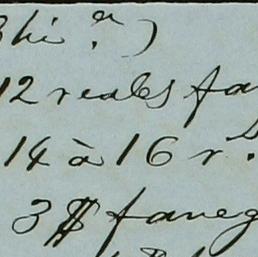 12 reales fa
14 à 16 r.s
3 $ faneg